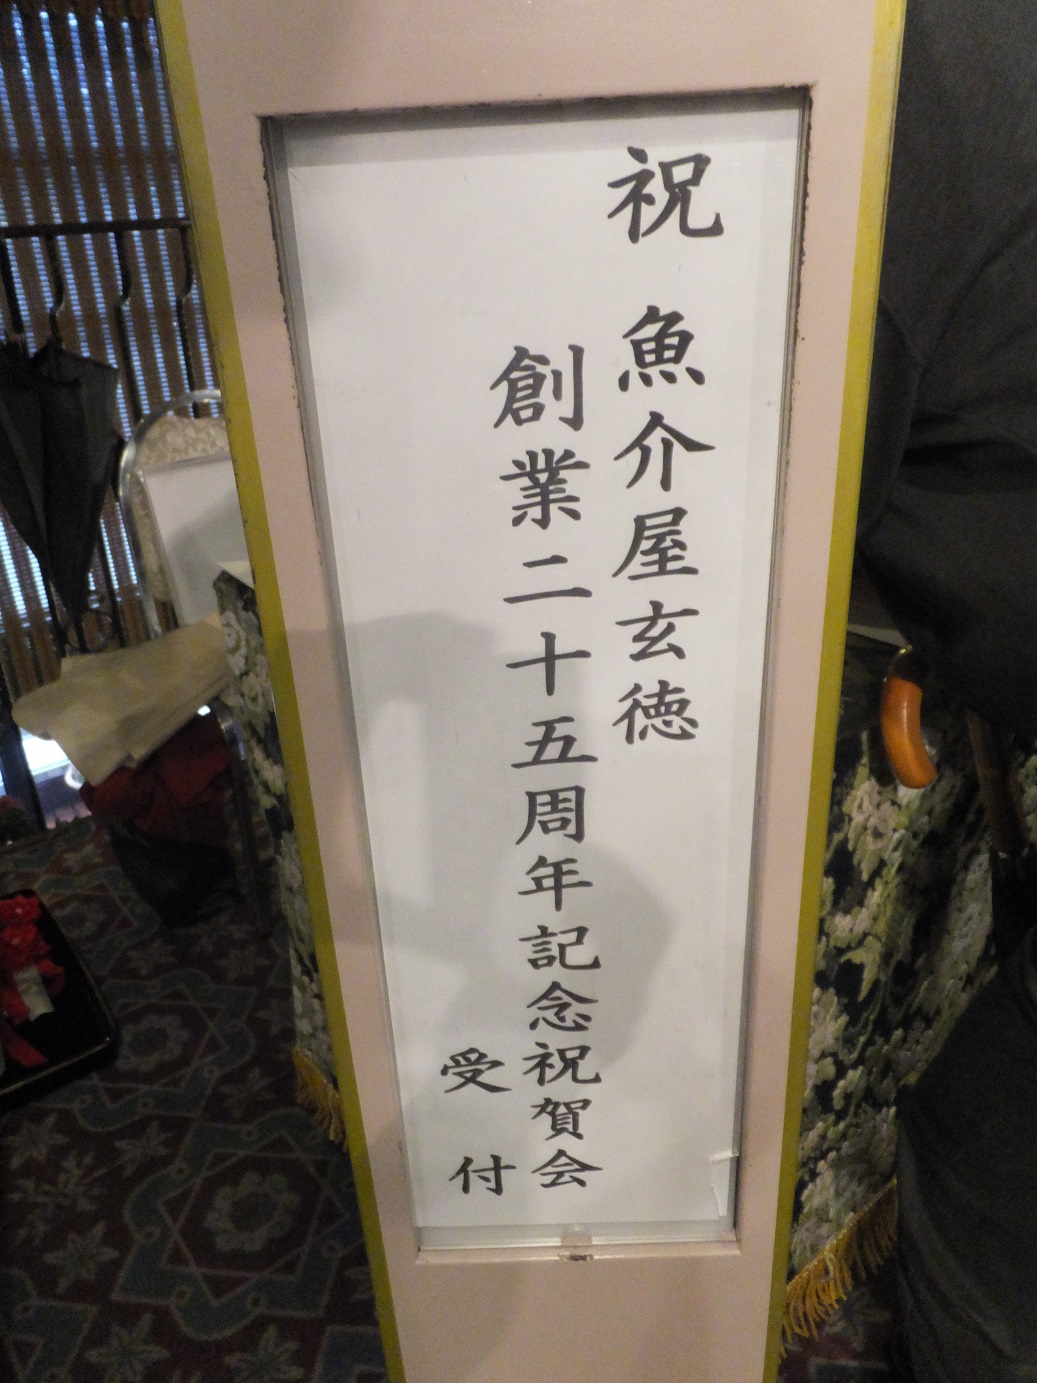 祝 魚介屋玄徳
創業二十五周年記念祝賀会
受付